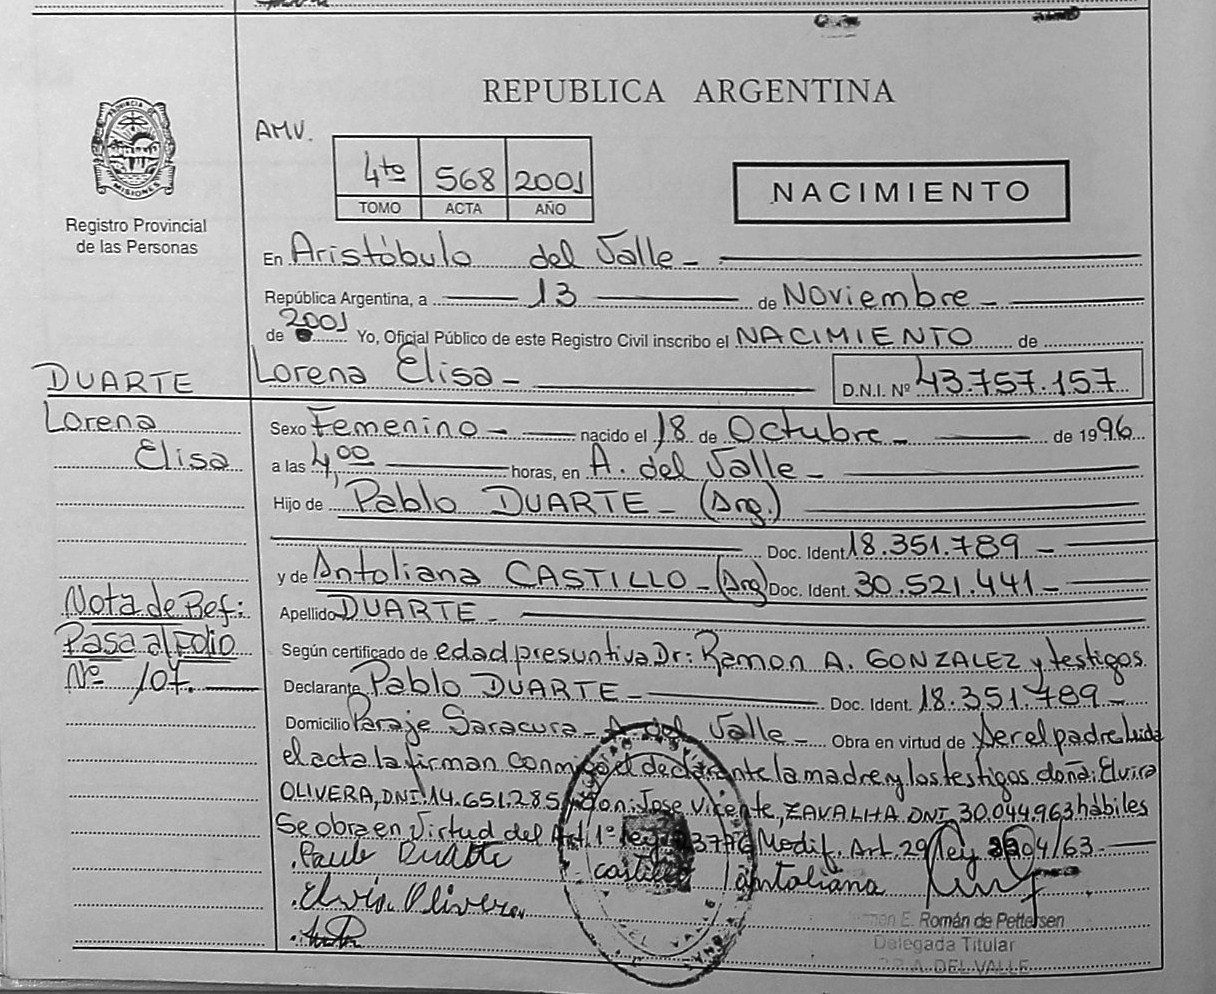 REPUBLICA ARGENTINA
PROVINCIA DE MISIONES
Registro Provincial
de las Personas
AMV.
4to 568 2001
TOMO ACTA AÑO
NACIMIENTO
En Aristóbulo del Valle -
República Argentina, a 13 de Noviembre -
de 2001 Yo, Oficial Público de este Registro Civil inscribo el NACIMIENTO de
Lorena Elisa - D.N.I. Nº 43.757.157
DUARTE
Lorena
Elisa
Sexo Femenino - nacido el 18 de Octubre - de 1996
a las 4,00 horas, en A. del Valle -
Hijo de Pablo DUARTE - (Arg.)
Doc. Ident. 18.351.789 -
y de Antoliana CASTILLO - (Arg) Doc. Ident. 30.521.441 -
Apellido DUARTE -
Nota de Ref:
Pasa al folio
Nº 107.
Según certificado de edad presuntiva Dr: Ramon A. GONZALEZ y testigos.
Declarante Pablo DUARTE - Doc. Ident. 18.351.789 -
Domicilio Paraje Saracura - A. del Valle - Obra en virtud de ser el padre Leida
el acta la firman conmigo el declarante la madre y los testigos doña: Elvira
OLIVERA, DNI. 14.651.285 y don: Jose Vicente, ZAVALHA DNI. 30.044.963 hábiles
Se obra en virtud del Art. 1º ley 23776 Modif. Art. 29 ley 2204/63 -
Duarte
castillo antoliana
Elvira Olivera
E. Román de Pettersen
Delegada Titular
DEL VALLE